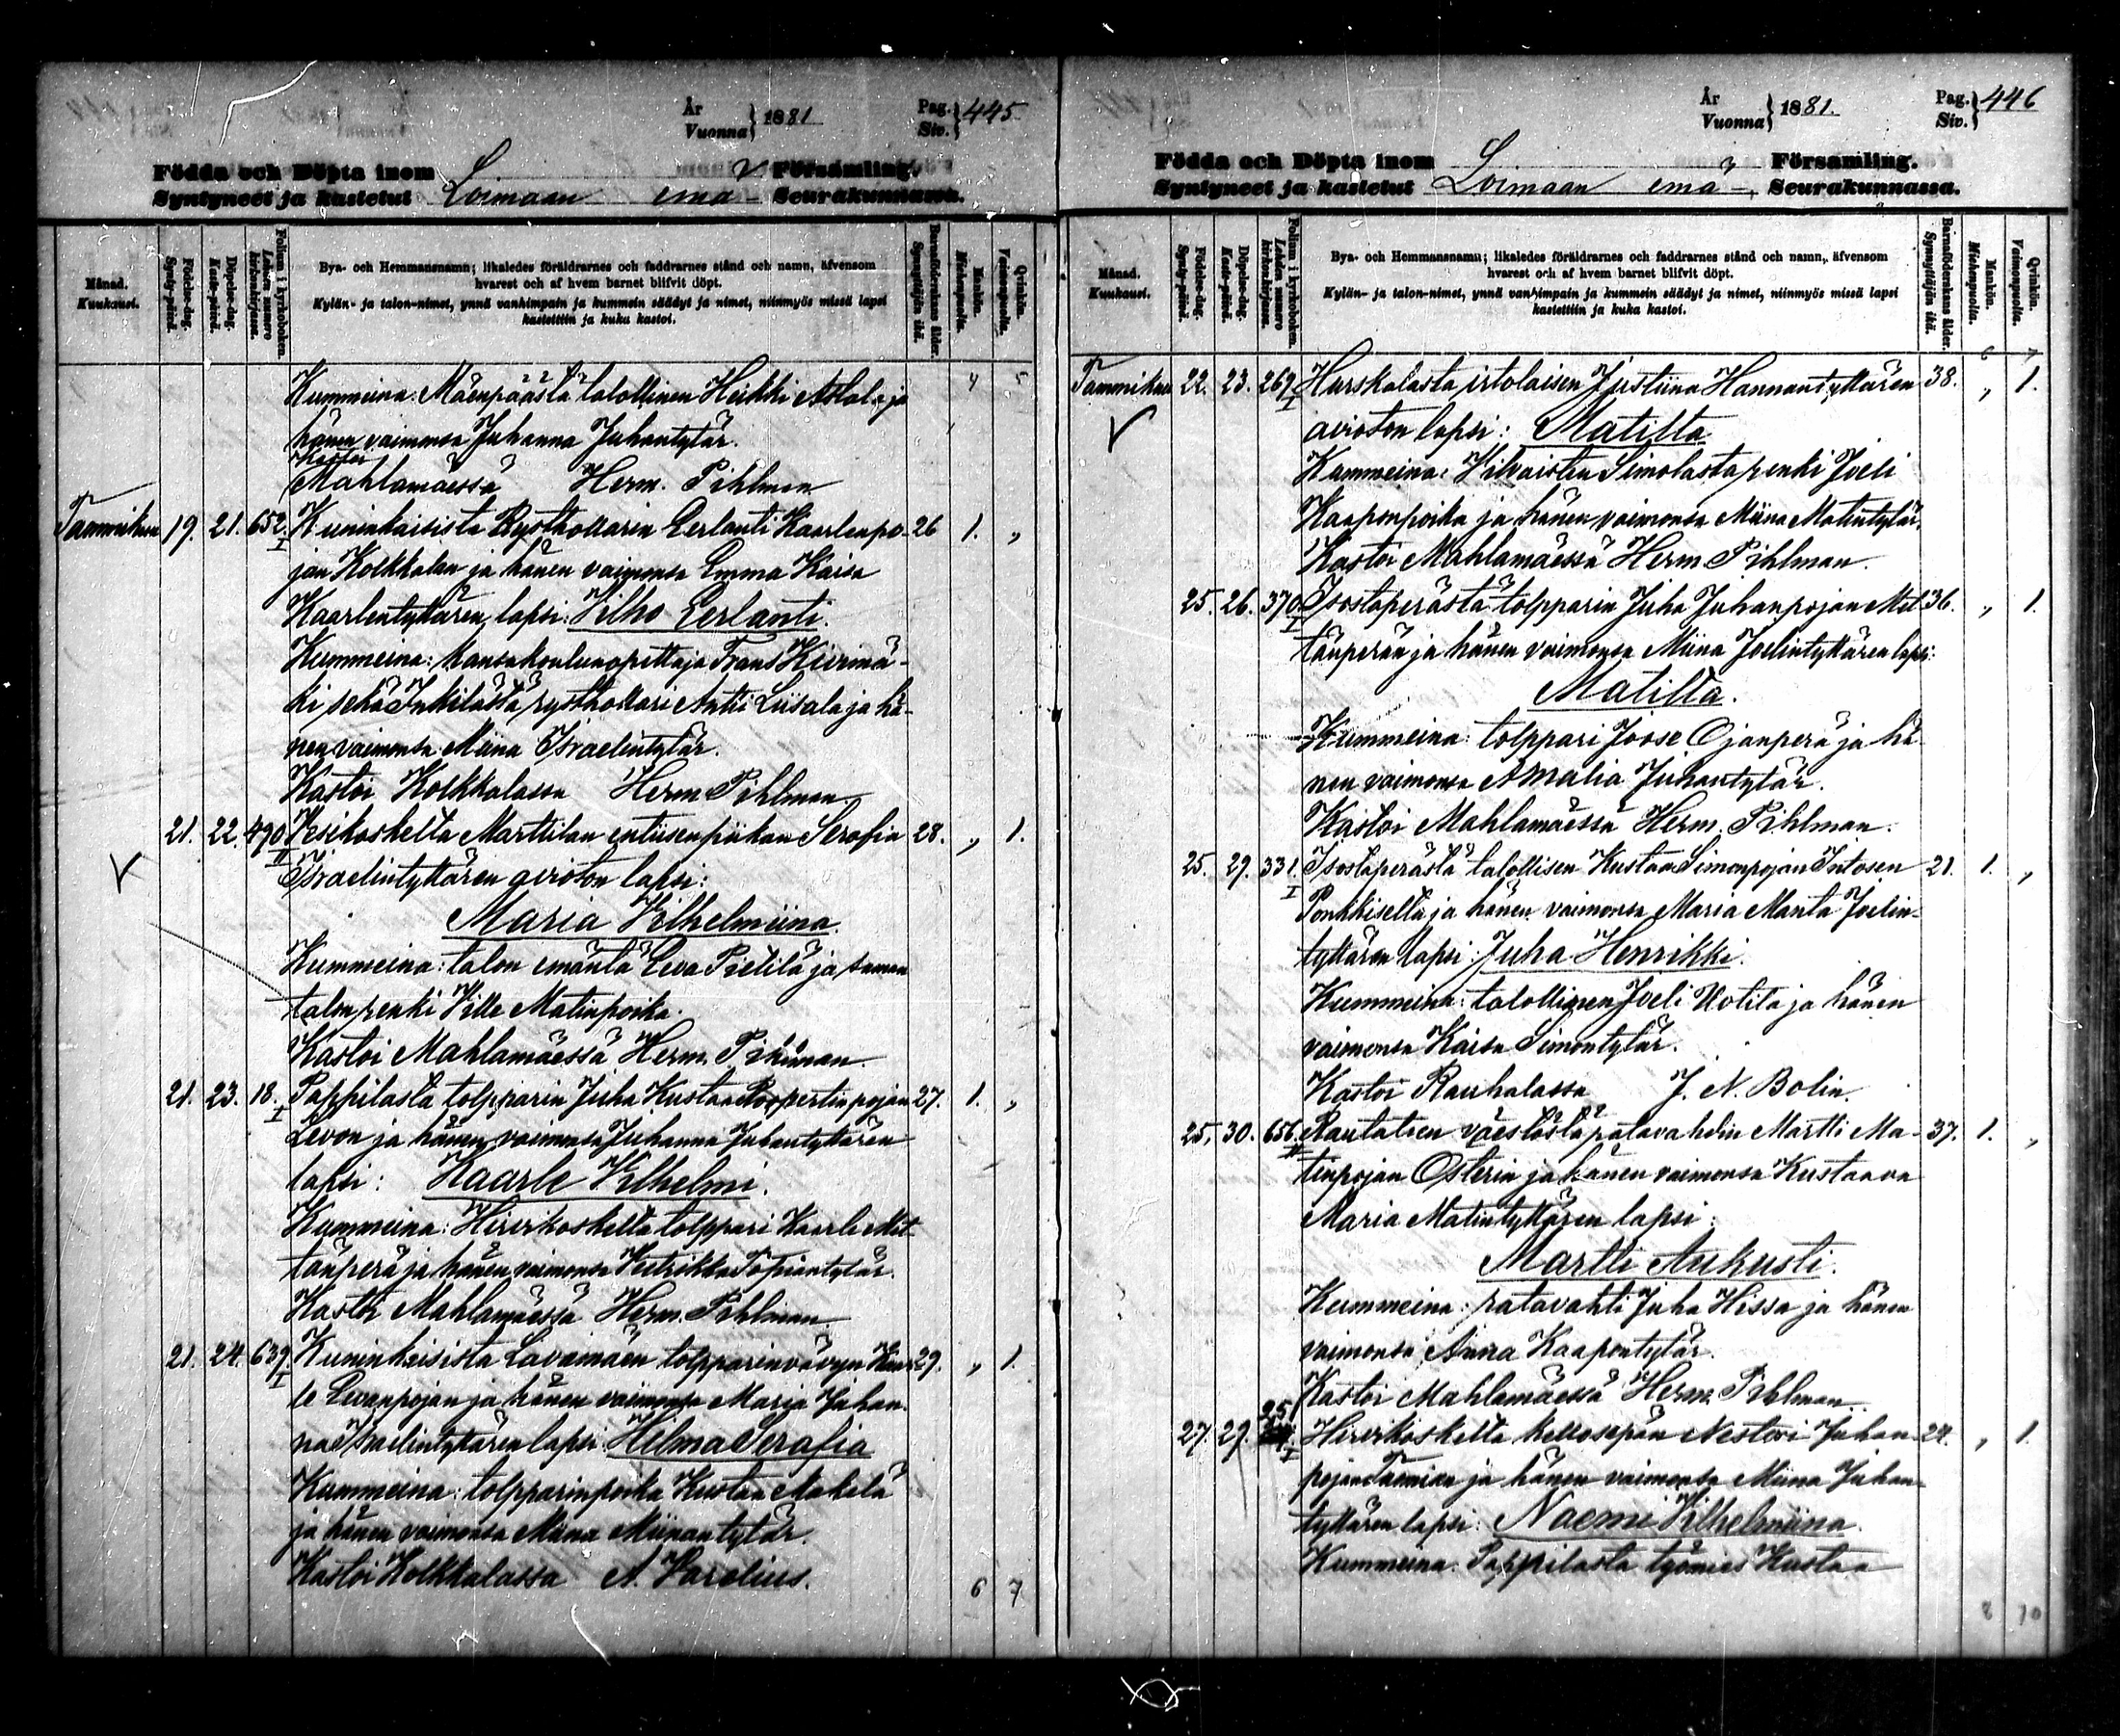 År
Vuonna } 1881
Pag.
Siv. } 445
Födda och Döpta inom Församling.
Syntyneet ja kastetut Loimaan emä- Seurakunnassa.
Månad.
Kuukausi.
Födelse-dag.
Synty-päivä.
Döpelse-dag.
Kaste-päivä.
Folium i kyrkoboken.
Lehden numero kirkonkirjassa.
Bya- och Hemmansnamn; likaledes föräldrarnes och faddrarnes stånd och namn, äfvensom
hvarest och af hvem barnet blifvit döpt.
Kylän- ja talon-nimet, ynnä vanhimpain ja kummein säädyt ja nimet, niinmyös missä lapsi
kastettiin ja kuka kastoi.
Barnaföderskans ålder.
Synnyttäjän ikä.
Mankön.
Miehenpuolta.
Qvinkön.
Vaimonpuolta.
Kummeina: Mäenpäästä talollinen Heikki Ahlola ja 4 5
hänen vaimonsa Juhanna Juhantytär.
Kastoi
Mahlamäessä Herm. Pihlman
Tammikuu 19. 21. 652. I Kuninkaisista Rysthollarin Eerlanti Kaarlenpo- 26 1. „
jan Kolkkalan ja hänen vaimonsa Emma Kaisa
Kaarlentyttären lapsi: Vilho Eerlanti.
Kummeina: kansakoulunopettaja Frans Kiirimä-
ki sekä Inkilästä rysthollari Antti Liisala ja hä-
nen vaimonsa Miina Israelintytär.
Kastoi Kolkkalassa Herm. Pihlman
21. 22. 490 II Vesikoskelta Marttilan entisen piikan Serafia 28. „ 1.
Israelintyttären avioton lapsi:
Maria Vilhelmiina.
Kummeina: talon emäntä Eeva Pietilä ja saman
talon renki Ville Matinpoika.
Kastoi Mahlamäessä Herm. Pihlman
21. 23. 18. I Pappilasta tolpparin Juha Kustaa Roopertinpojan 27. 1. „
Levon ja hänen vaimonsa Juhanna Juhantyttären
lapsi: Kaarle Vilhelmi.
Kummeina: Hirvikoskelta tolppari Kaarle Met-
tänperä ja hänen vaimonsa
Kastoi Mahlamäessä Herm. Pihlman
21. 24. 639 I Kuninkaisista Lavamäen tolpparinvävyn Kaar- 29. „ 1.
le Eevanpojan ja hänen vaimonsa Maria Juhan-
na Israelintyttären lapsi: Hilma Serafia
Kummeina: tolpparinpoika Kustaa Mäkelä
ja hänen vaimonsa Miina Miinantytär.
Kastoi Kolkkalassa A. Varelius.
6 7
År
Vuonna } 1881.
Pag.
Siv. } 446
Födda och Döpta inom Församling.
Syntyneet ja kastetut Loimaan emä- Seurakunnassa.
Månad.
Kuukausi.
Födelse-dag.
Synty-päivä.
Döpelse-dag.
Kaste-päivä.
Folium i kyrkoboken.
Lehden numero kirkonkirjassa.
Bya- och Hemmansnamn; likaledes föräldrarnes och faddrarnes stånd och namn, äfvensom
hvarest och af hvem barnet blifvit döpt.
Kylän- ja talon-nimet, ynnä vanhimpain ja kummein säädyt ja nimet, niinmyös missä lapsi
kastettiin ja kuka kastoi.
Barnaföderskans ålder.
Synnyttäjän ikä.
Mankön.
Miehenpuolta.
Qvinkön.
Vaimonpuolta.
6 7
Tammikuu 22. 23. 269 I Hurskalasta irtolaisen Justiina Hannantyttären 38. „ 1.
avioton lapsi: Matilta
Kummeina: Simolasta renki Joeli
Kaaponpoika ja hänen vaimonsa Miina Matintytär.
Kastoi Mahlamäessä Herm. Pihlman.
25. 26. 370 I Isostaperästä tolpparin Juha Juhanpojan Met- 36. „ 1.
tänperän ja hänen vaimonsa Miina Joelintyttären lapsi:
Matilta.
Kummeina: tolppari Joose Ojanperä ja hä-
nen vaimonsa Amalia Juhantytär.
Kastoi Mahlamäessä Herm. Pihlman.
25. 29. 331. I Isostaperästä talollisen Kustaa Simonpojan Intosen 21. 1. „
ja hänen vaimonsa Maria Manta Joelin-
tyttären lapsi: Juha Henrikki.
Kummeina: talollinen Joeli Uotila ja hänen
vaimonsa Kaisa Simontytär.
Kastoi Rauhalassa J. N. Bolin.
25. 30. 656. II Rautatien väestöstä ratavahdin Martti Ma- 37. 1. „
tinpojan Österin ja hänen vaimonsa Kustaava
Maria Matintyttären lapsi:
Martti Aukusti.
Kummeina: ratavahti Juha Hissa ja hänen
vaimonsa Anna Kaapontytär.
Kastoi Mahlamäessä Herm. Pihlman
27. 29. 25 I Hirvikoskelta kellosepän Nestori Juhan- 24. „ 1.
pojan Tammisen ja hänen vaimonsa Miina Juhan-
tyttären lapsi: Naemi Vilhelmiina.
Kummeina: Pappilasta työmies Kustaa
8 10